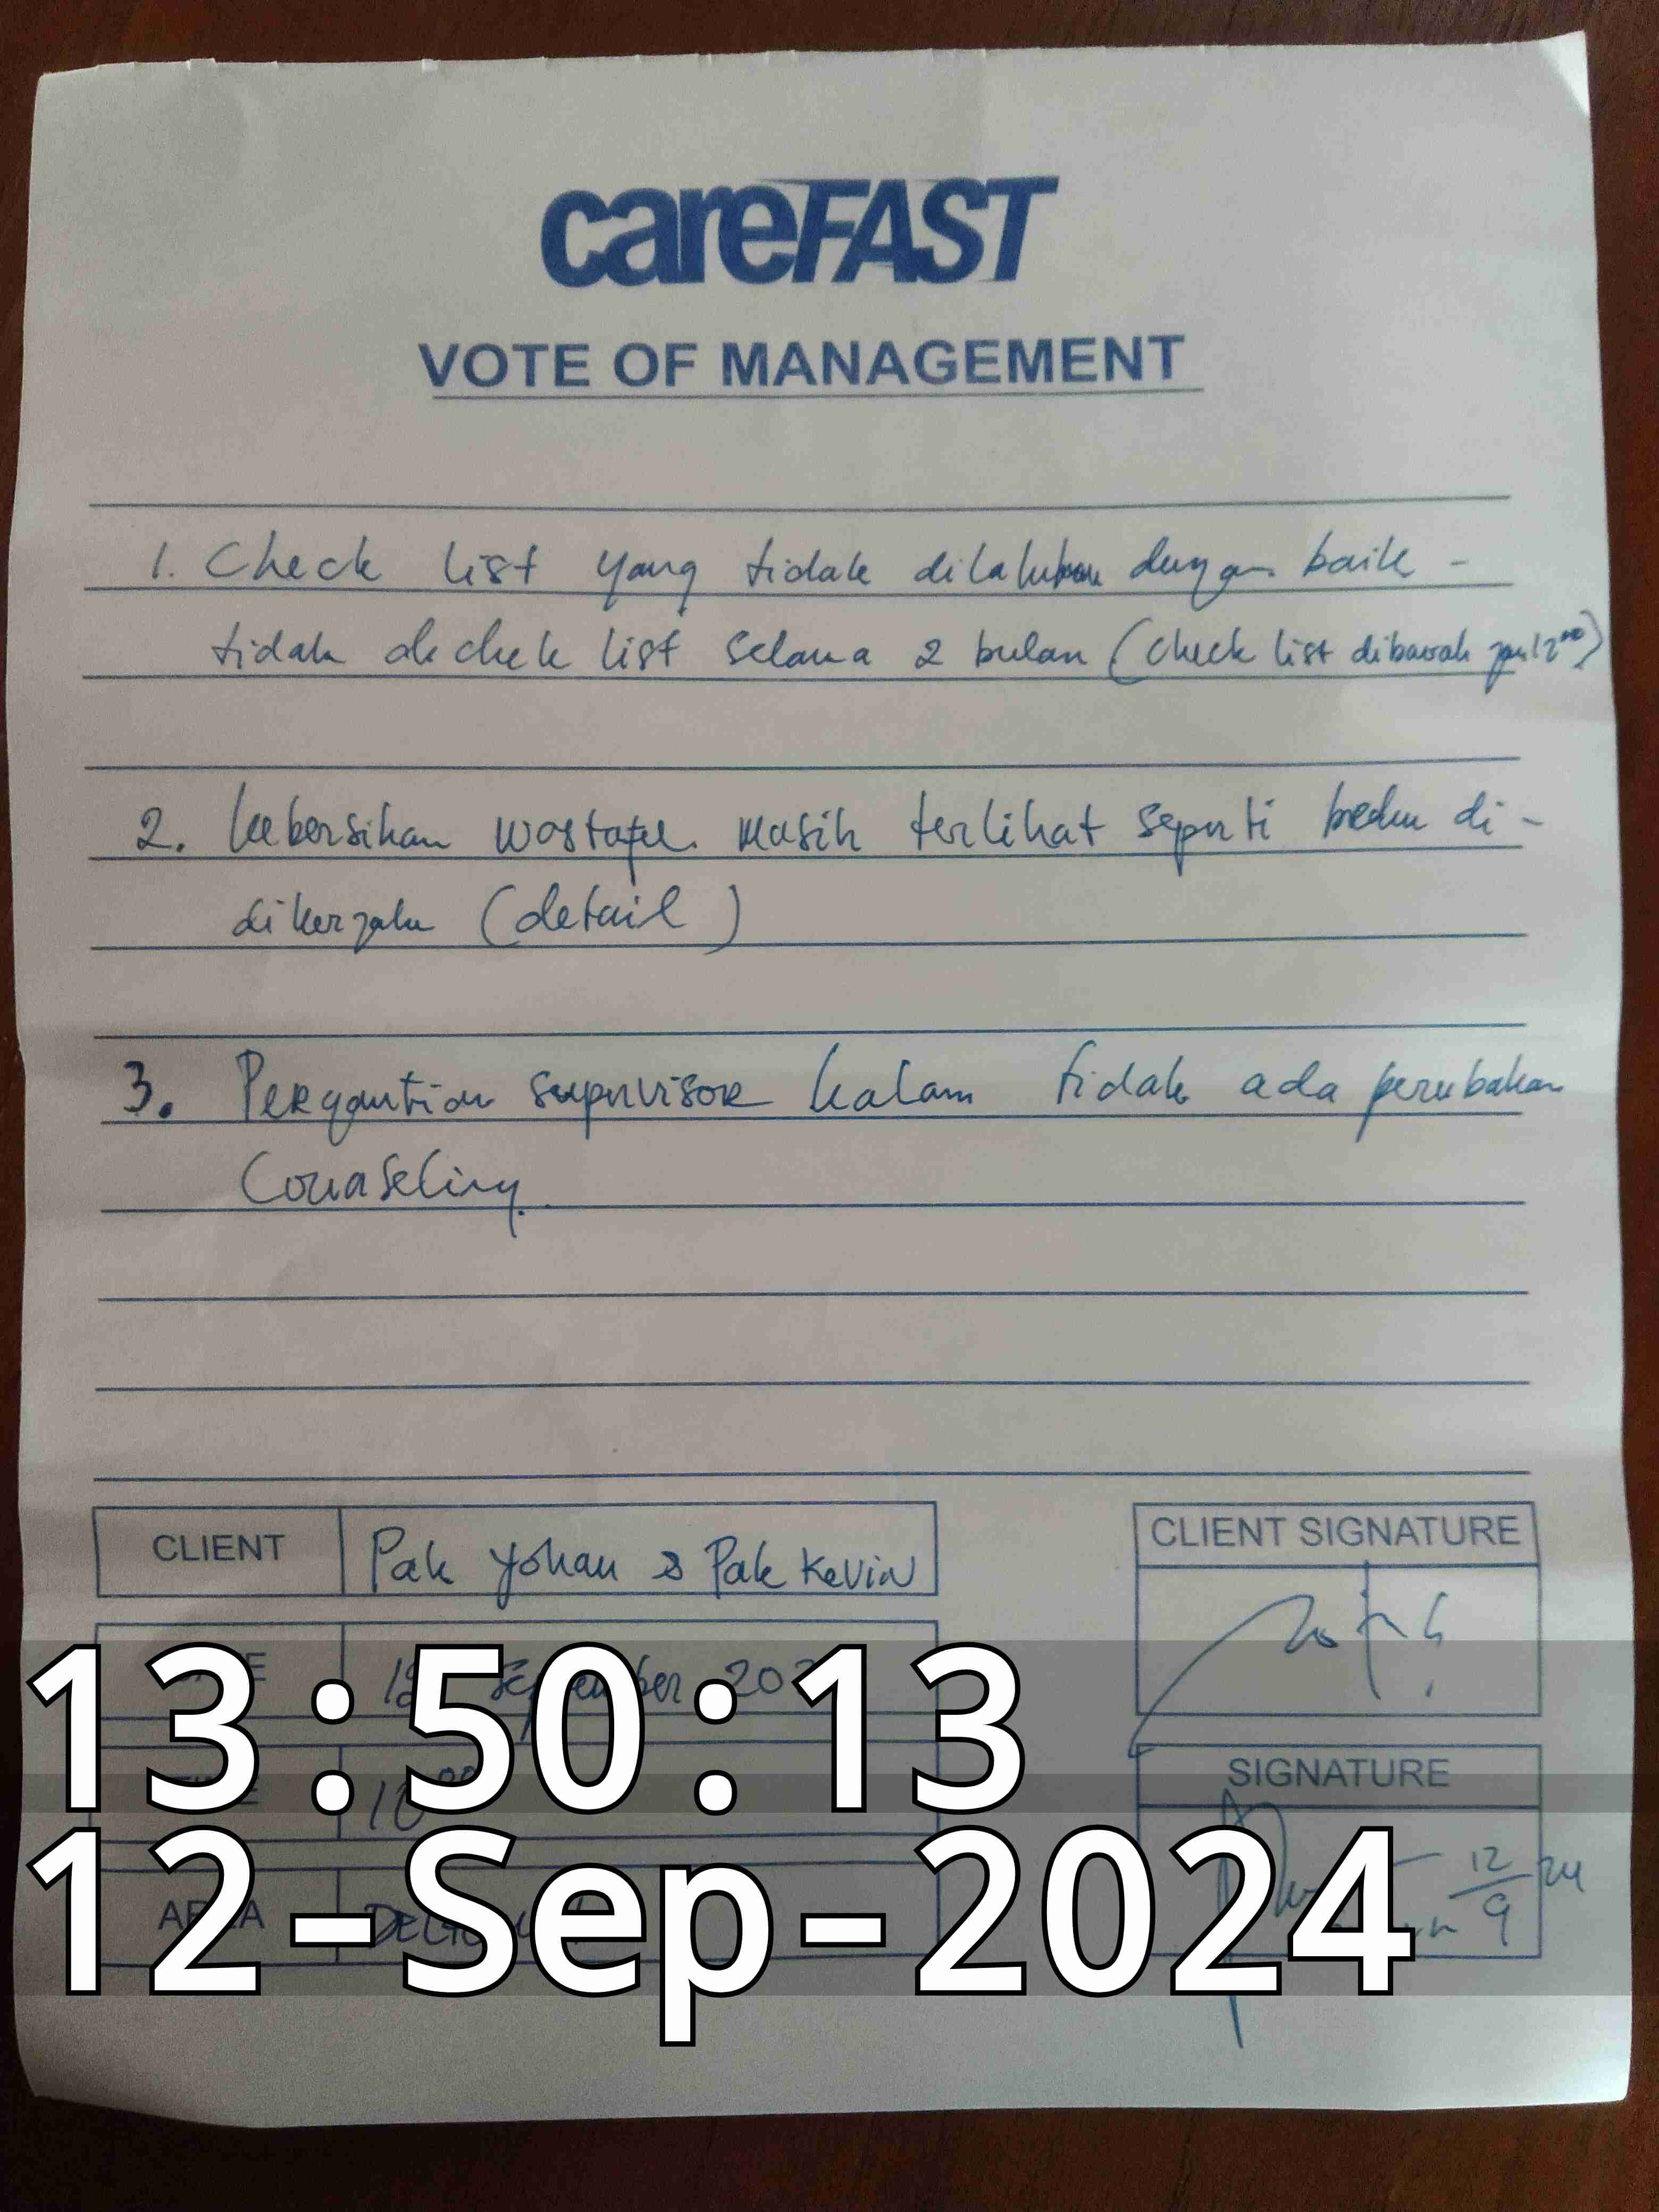 careFAST
VOTE OF MANAGEMENT
1. Check list yang tidak dilakukan dengan baik -
tidak di chek list selama 2 bulan (Check list dibawah jam 12⁰⁰)
2. kebersihan wastafel masih terlihat seperti di-
dikerjakan (detail)
3. Pergantian supervisor kalau tidak ada perubahan
Counseling.
CLIENT Pak Yohan & Pak Kevin
CLIENT SIGNATURE
September
SIGNATURE
12/9 24
AREA
13:50:13
12-Sep-2024